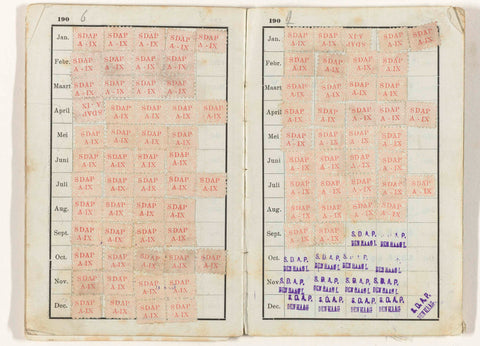 190 6
Jan. SDAP SDAP SDAP SDAP SDAP
A-IX A-IX A-IX A-IX A-IX
Febr. SDAP SDAP SDAP SDAP
A-IX A-IX A-IX A-IX
Maart SDAP SDAP SDAP SDAP
A-IX A-IX A-IX A-IX
April SDAP SDAP SDAP SDAP SDAP
A-IX A-IX A-IX A-IX A-IX
Mei SDAP SDAP SDAP SDAP
A-IX A-IX A-IX A-IX
Juni SDAP SDAP SDAP SDAP
A-IX A-IX A-IX A-IX
Juli SDAP SDAP SDAP SDAP SDAP
A-IX A-IX A-IX A-IX A-IX
Aug. SDAP SDAP SDAP SDAP
A-IX A-IX A-IX A-IX
Sept. SDAP SDAP SDAP SDAP
A-IX A-IX A-IX A-IX
Oct. SDAP SDAP SDAP SDAP SDAP
A-IX A-IX A-IX A-IX A-IX
Nov. SDAP SDAP SDAP SDAP
A-IX A-IX A-IX A-IX
Dec. SDAP SDAP SDAP SDAP
A-IX A-IX A-IX A-IX
190
Jan. SDAP SDAP SDAP SDAP SDAP
A-IX A-IX A-IX A-IX A-IX
Febr. SDAP SDAP SDAP SDAP
A-IX A-IX A-IX A-IX
Maart SDAP SDAP SDAP SDAP
A-IX A-IX A-IX A-IX
April SDAP SDAP SDAP SDAP SDAP
A-IX A-IX A-IX A-IX A-IX
Mei SDAP SDAP SDAP SDAP
A-IX A-IX A-IX A-IX
Juni SDAP SDAP SDAP SDAP
A-IX A-IX A-IX A-IX
Juli SDAP SDAP SDAP SDAP SDAP
A-IX A-IX A-IX A-IX A-IX
Aug. SDAP SDAP SDAP SDAP
A-IX A-IX A-IX A-IX
Sept. SDAP SDAP S.D.A.P.
A-IX A-IX DEN HAAG I. DEN HAAG I.
Oct. S.D.A.P. S.D.A.P. S.D.A.P.
DEN HAAG I. DEN HAAG I. DEN HAAG I. DEN HAAG I.
Nov. S.D.A.P. S.D.A.P. S.D.A.P. S.D.A.P.
DEN HAAG I. DEN HAAG I. DEN HAAG I. DEN HAAG I.
Dec. S.D.A.P. S.D.A.P. S.D.A.P. S.D.A.P. S.D.A.P.
DEN HAAG DEN HAAG DEN HAAG DEN HAAG DEN HAAG